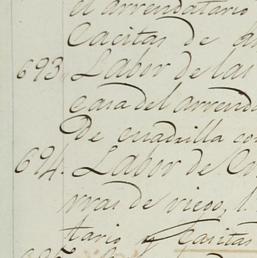 el arrendatario
Casitas de
693. Labor de las
casa del arrend
de cuadrilla co
694. Labor de Co
rras de riego, 
tario y Casitas